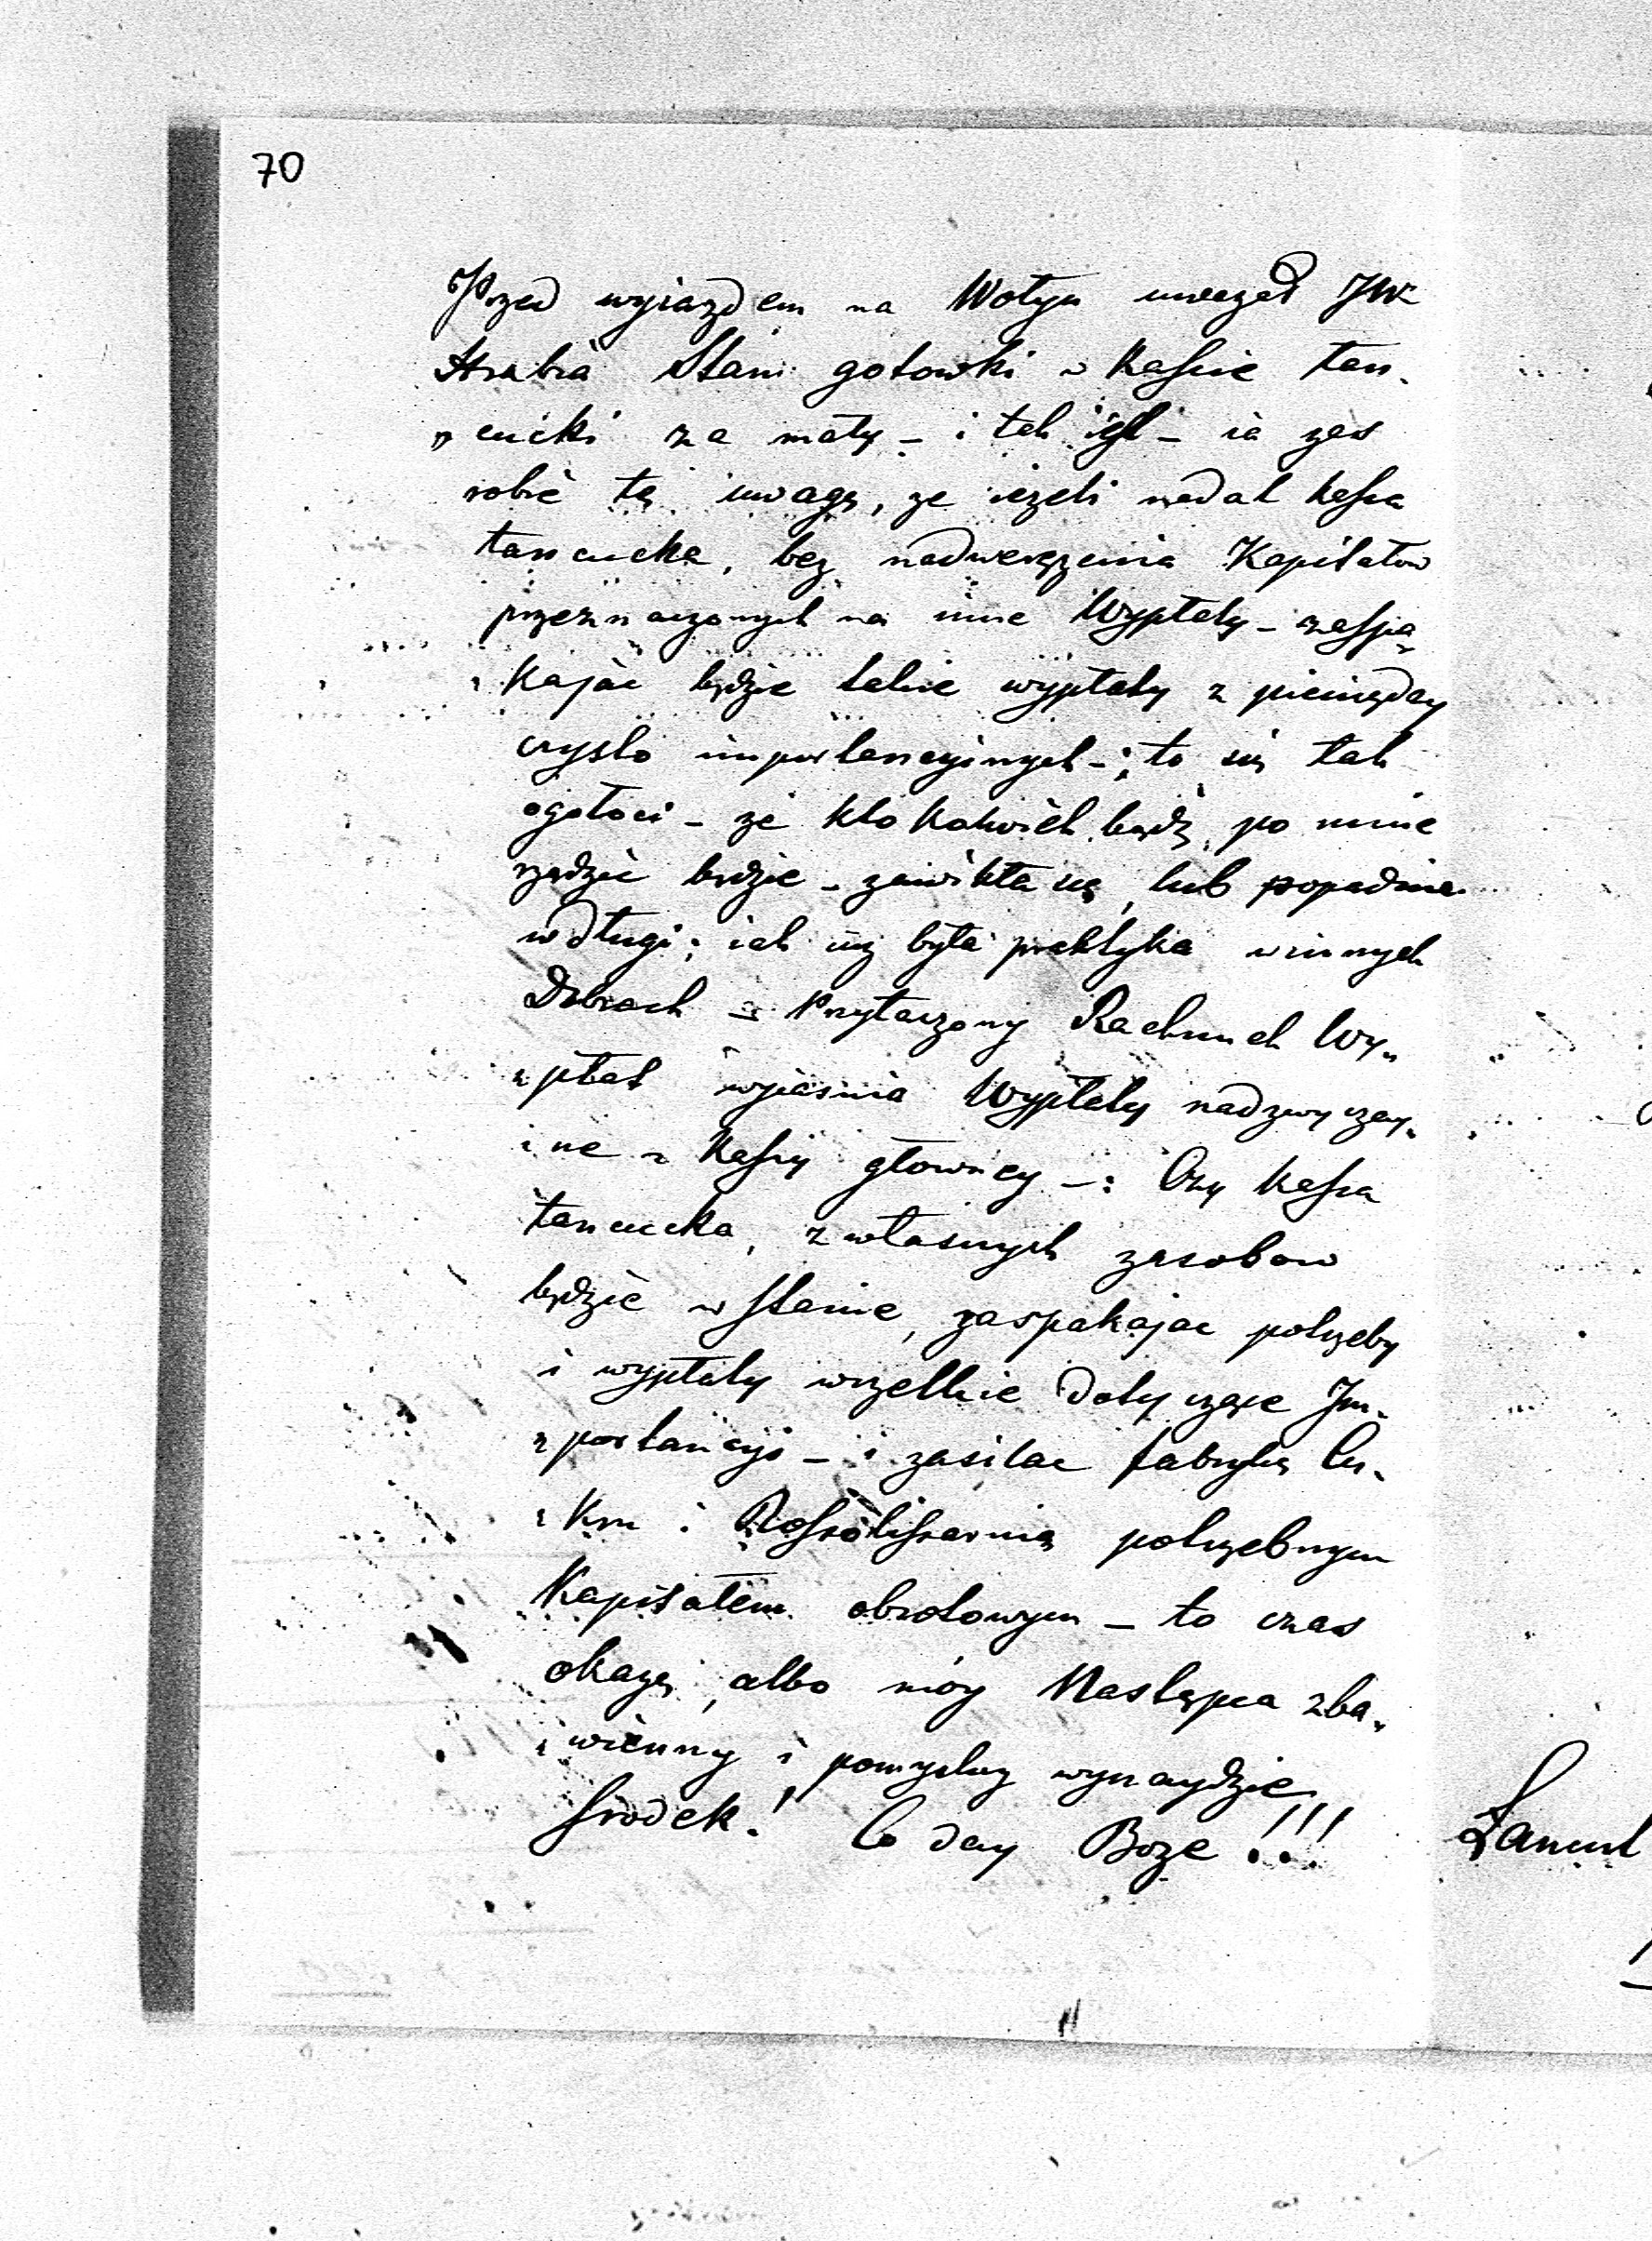 70
Przed wyiazdem na Wołyn uważał JW
Hrabia Stan gotowki w Kassie łan„
„cucki za mały – i tak iest – ia zas
robię tę uwagę, ze ieżeli nadal kassa
łancucka, bez nadwerężenia Kapitałow
przeznaczonych na inne Wypłaty – zaspa„
„kajać będzie takie wypłaty z pieniędzy
czysto importancyinych –; to się tak
ogołoci – że ktokolwiek bądź, po mnie
rządzić będzie – zawikła się, lub popadnie
w długi; iak iuż była praktyka w innych
Dobrach – Przytaczony Rachunek Wy„
„płat wyiasnia Wypłaty nadzwyczay„
ine z Kassy głowney –: Czy kassa
łancucka, z własnych zasobow
będzie w stanie, zaspakajac potrzeby
i wypłaty wszelkie dotyczące Im„
„portancyi – i zasilac fabrykę Cu„
„kru i Rossolisarnią potrzebnym
Kapitałem obrotowym – to czas
okaże, albo móy Następca zba„
„wienny i pomyslny wynaydzie
srodek! Co day Boze !!!
Łancut